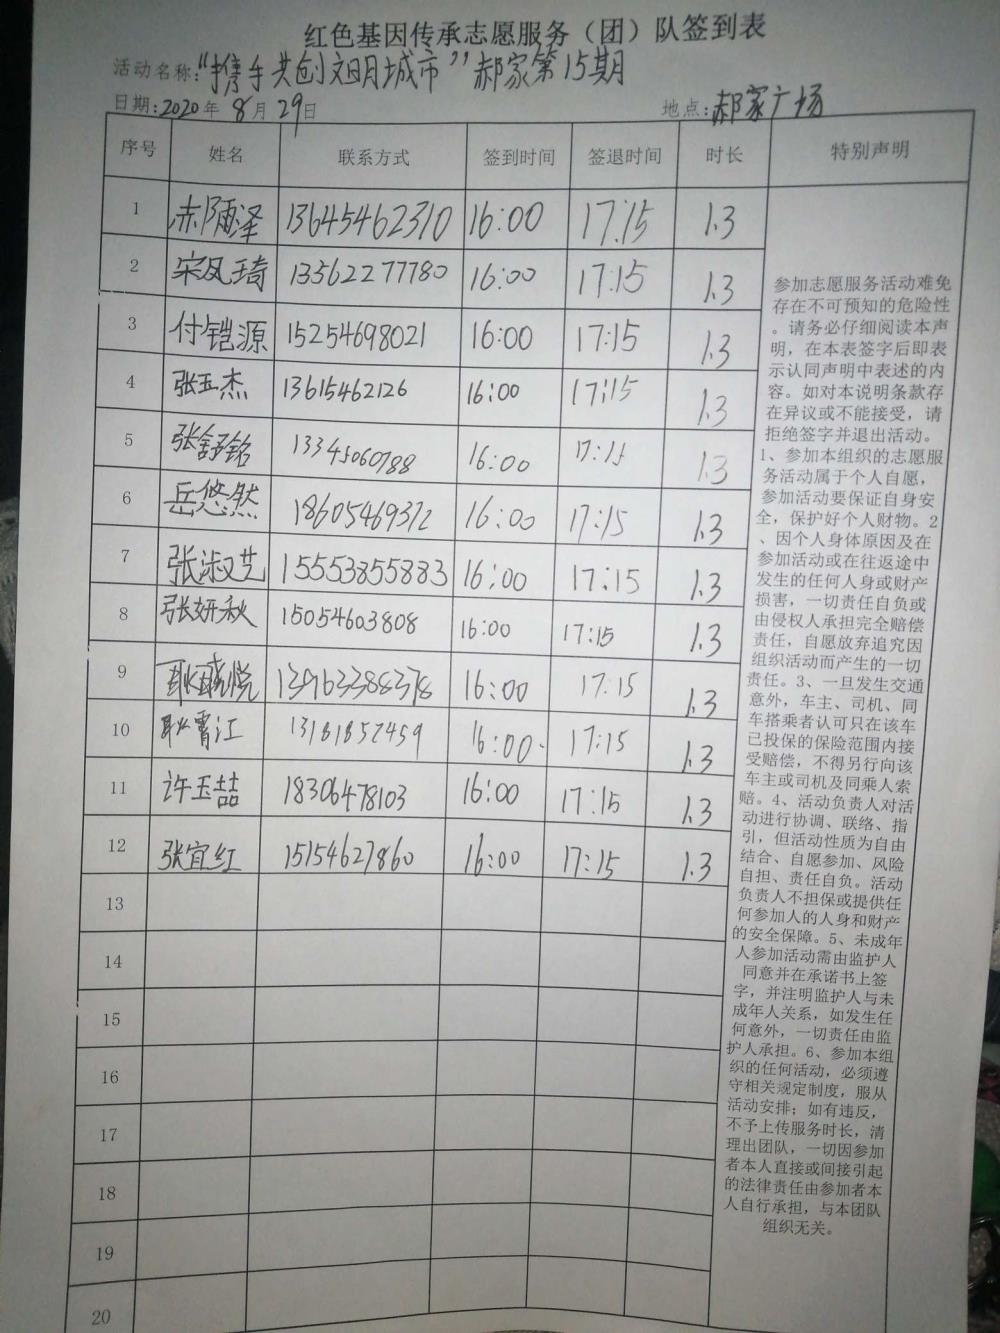 红色基因传承志愿服务（团）队签到表
活动名称：“携手共创文明城市”郝家第15期
日期：2020年8月29日 地点：郝家广场
序号 姓名 联系方式 签到时间 签退时间 时长 特别声明
1 13645462310 16:00 17:15 1.3
2 宋凤琦 13562277780 16:00 17:15 1.3
3 付铠源 15254698021 16:00 17:15 1.3
4 张玉杰 13615462126 16:00 17:15 1.3
5 张舒铭 13345060788 16:00 17:15 1.3
6 岳悠然 18605469372 16:00 17:15 1.3
7 张淑芝 15553855883 16:00 17:15 1.3
8 张妍秋 15054603808 16:00 17:15 1.3
9 16:00 17:15 1.3
10 耿霄江 13181857459 16:00 17:15 1.3
11 许玉喆 18306478103 16:00 17:15 1.3
12 张宜红 15154627860 16:00 17:15 1.3
13
14
15
16
17
18
19
20
参加志愿服务活动难免
存在不可预知的危险性
。请务必仔细阅读本声
明，在本表签字后即表
示认同声明中表述的内
容。如对本说明条款存
在异议或不能接受，请
拒绝签字并退出活动。
1、参加本组织的志愿服
务活动属于个人自愿，
参加活动要保证自身安
全，保护好个人财物。2
、因个人身体原因及在
参加活动或在往返途中
发生的任何人身或财产
损害，一切责任自负或
由侵权人承担完全赔偿
责任，自愿放弃追究因
组织活动而产生的一切
责任。3、一旦发生交通
意外，车主、司机、同
车搭乘者认可只在该车
已投保的保险范围内接
受赔偿，不得另行向该
车主或司机及同乘人索
赔。4、活动负责人对活
动进行协调、联络、指
引，但活动性质为自由
结合、自愿参加、风险
自担、责任自负。活动
负责人不担保或提供任
何参加人的人身和财产
的安全保障。5、未成年
人参加活动需由监护人
同意并在承诺书上签
字，并注明监护人与未
成年人关系，如发生任
何意外，一切责任由监
护人承担。6、参加本组
织的任何活动，必须遵
守相关规定制度，服从
活动安排；如有违反，
不予上传服务时长，清
理出团队，一切因参加
者本人直接或间接引起
的法律责任由参加者本
人自行承担，与本团队
组织无关。